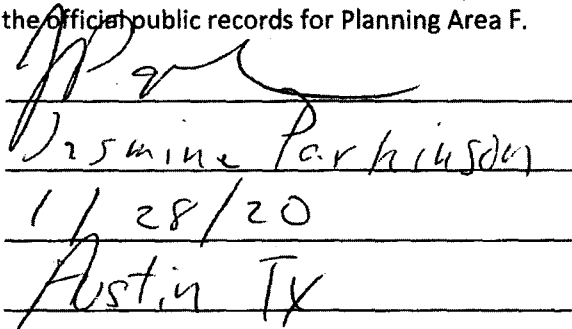 the official public records for Planning Area F.
Jasmine Parkinson
1/28/20
Austin TX